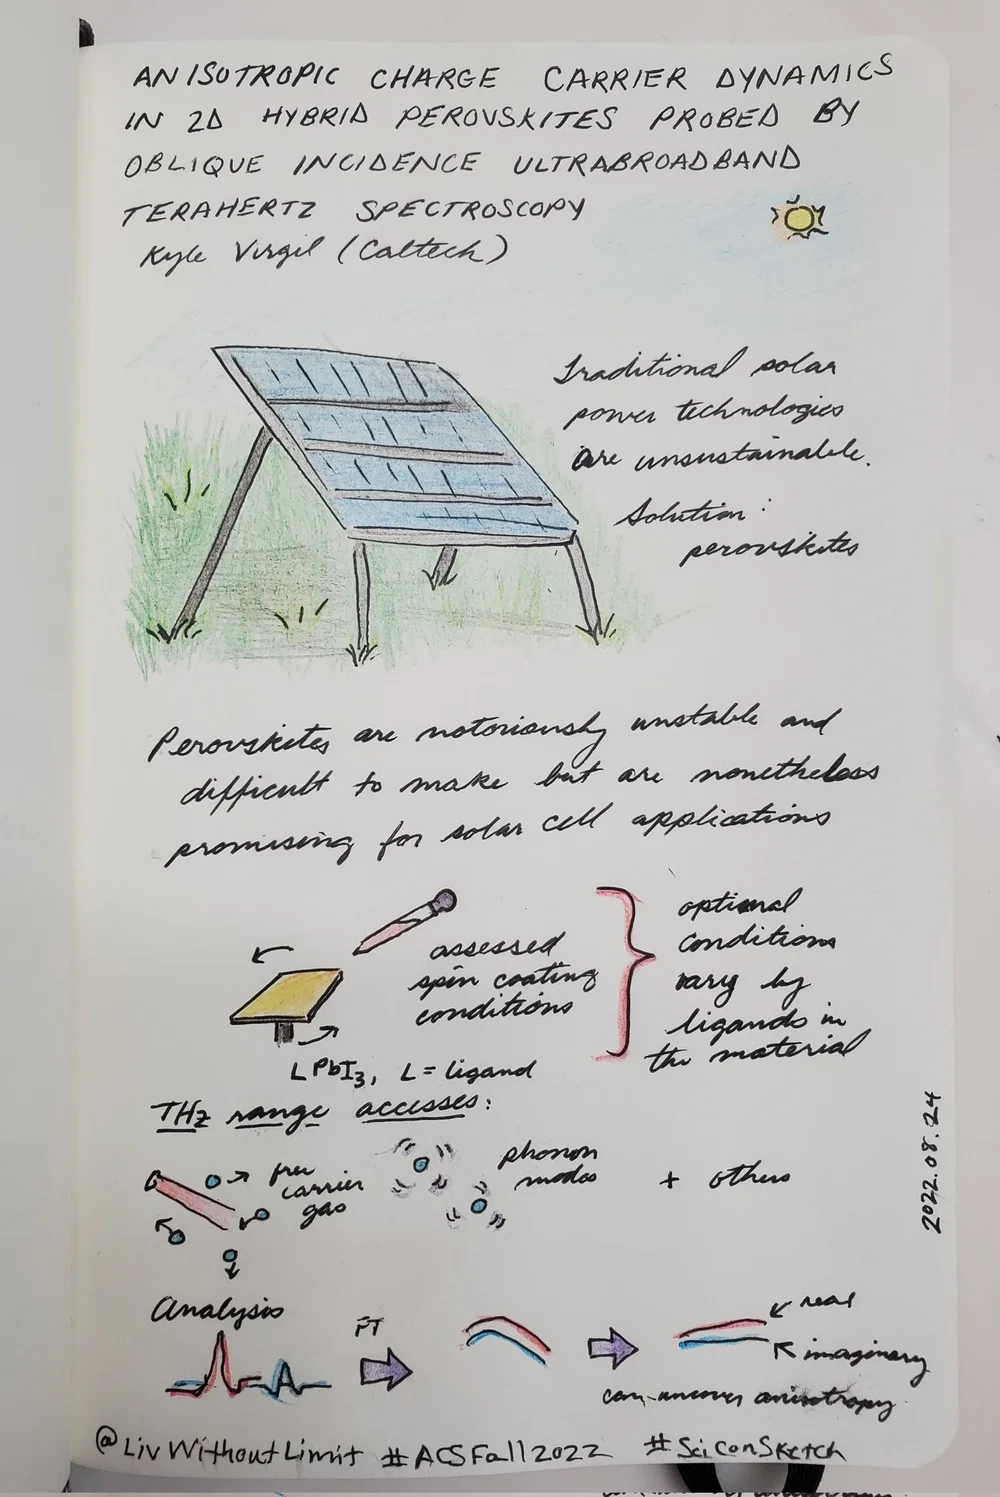 ANISOTROPIC CHARGE CARRIER DYNAMICS
IN 2D HYBRID PEROVSKITES PROBED BY
OBLIQUE INCIDENCE ULTRABROADBAND
TERAHERTZ SPECTROSCOPY
Kyle Virgil (Caltech)
Traditional solar
power technologies
are unsustainable.
Solution:
perovskites
Perovskites are notoriously unstable and
difficult to make but are nonetheless
promising for solar cell applications
assessed
spin coating
conditions
optimal
conditions
vary by
ligands in
the material
LPbI3, L = ligand
THz range accesses:
free
carrier
gas
phonon
modes
+ others
2022.08.24
Analysis
FT
real
imaginary
can uncover anisotropy
@LivWithoutLimit #ACSFall2022 #SciConSketch